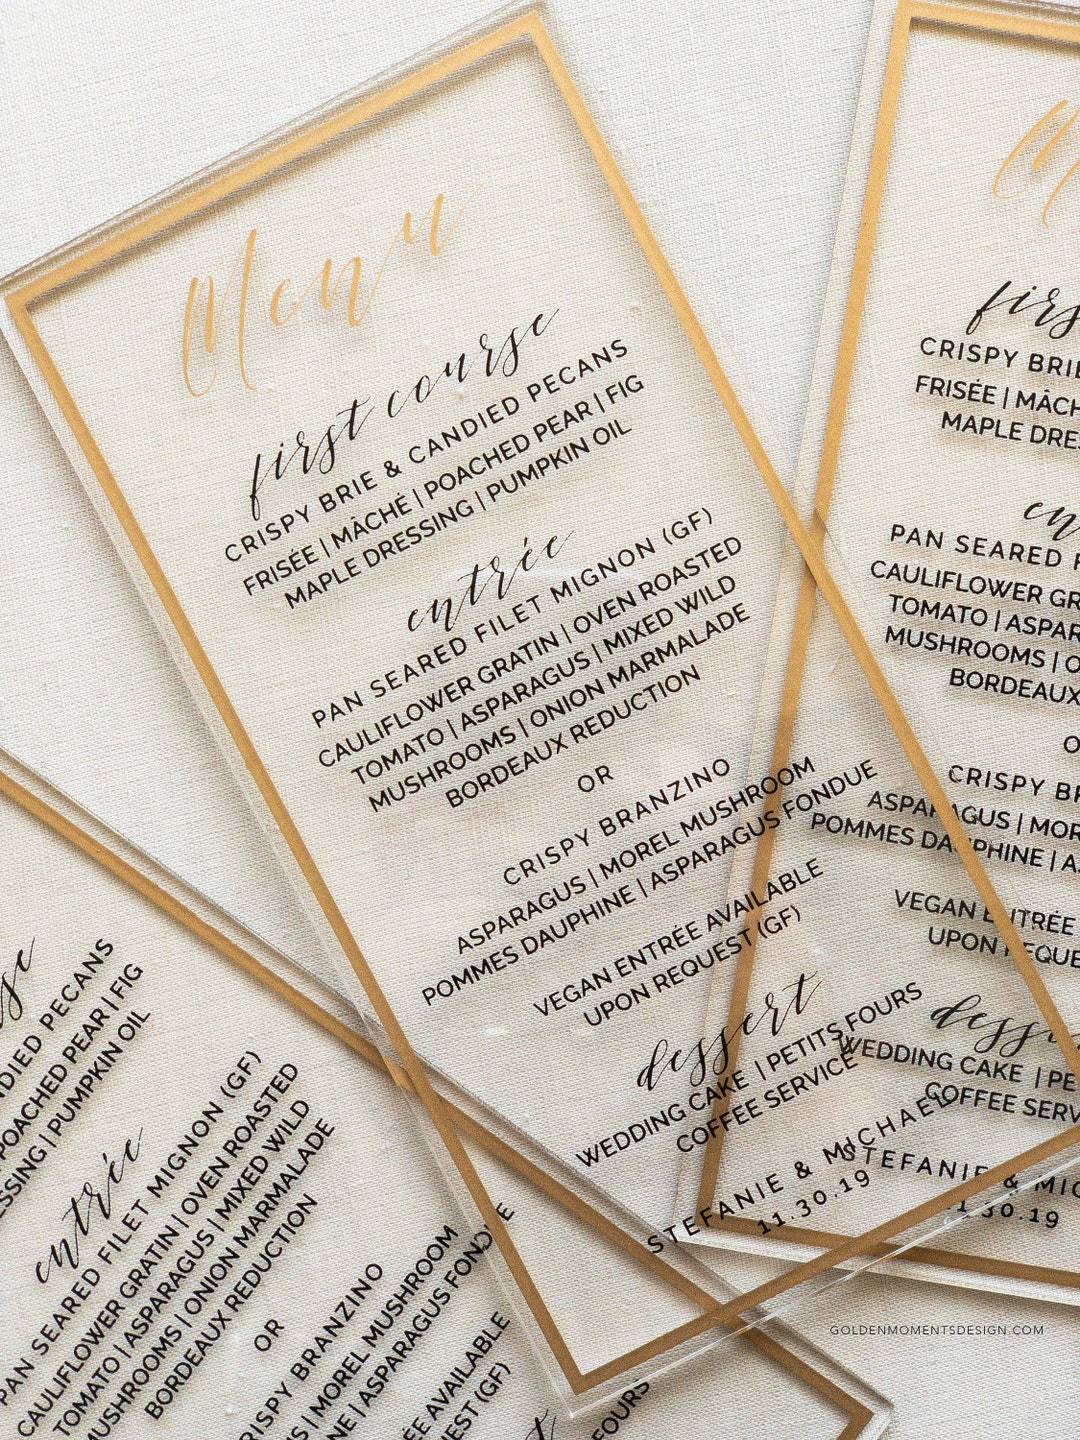 Menu
first course
CRISPY BRIE & CANDIED PECANS
FRISÉE | MÂCHÉ | POACHED PEAR | FIG
MAPLE DRESSING | PUMPKIN OIL
entrée
PAN SEARED FILET MIGNON (GF)
CAULIFLOWER GRATIN | OVEN ROASTED
TOMATO | ASPARAGUS | MIXED WILD
MUSHROOMS | ONION MARMALADE
BORDEAUX REDUCTION
OR
CRISPY BRANZINO
ASPARAGUS | MOREL MUSHROOM
POMMES DAUPHINE | ASPARAGUS FONDUE
VEGAN ENTRÉE AVAILABLE
UPON REQUEST (GF)
dessert
WEDDING CAKE | PETITS FOURS
COFFEE SERVICE
STEFANIE & MICHAEL
11.30.19
CRISPY BRIE
FRISÉE | MÂCH
MAPLE DRES
PAN SEARED F
CAULIFLOWER GR
TOMATO | ASPAR
MUSHROOMS | O
BORDEAUX
CRISPY BR
ASPARAGUS | MOR
POMMES DAUPHINE | A
VEGAN ENTRÉE
UPON REQUE
WEDDING CAKE | PE
COFFEE SERV
STEFANIE & MIC
11.30.19
NDIED PECANS
POACHED PEAR | FIG
SSING | PUMPKIN OIL
entrée
PAN SEARED FILET MIGNON (GF)
CAULIFLOWER GRATIN | OVEN ROASTED
TOMATO | ASPARAGUS | MIXED WILD
MUSHROOMS | ONION MARMALADE
BORDEAUX REDUCTION
OR
RISPY BRANZINO
S | MOREL MUSHROOM
NE | ASPARAGUS FONDUE
ÉE AVAILABLE
EST (GF)
FOURS
GOLDENMOMENTSDESIGN.COM